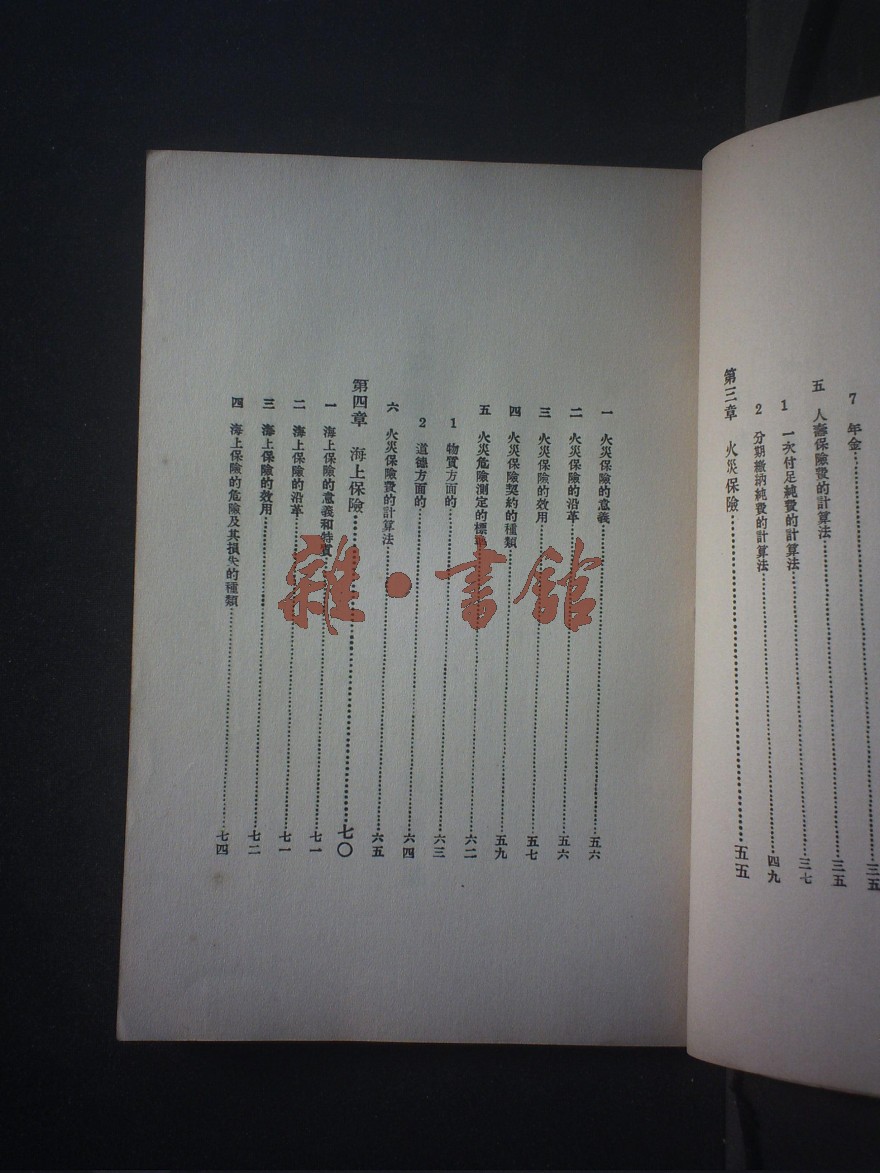 7 年金⋯⋯三五
五 人壽保險費的計算法⋯⋯三五
1 一次付足純費的計算法⋯⋯三七
2 分期繳納純費的計算法⋯⋯四九
第三章 火災保險⋯⋯五五
一 火災保險的意義⋯⋯五六
二 火災保險的沿革⋯⋯五六
三 火災保險的效用⋯⋯五七
四 火災保險契約的種類⋯⋯五九
五 火災危險測定的標⋯⋯六二
1 物質方面的⋯⋯六三
2 道德方面的⋯⋯六四
六 火災保險費的計算法⋯⋯六五
第四章 海上保險⋯⋯七〇
一 海上保險的意義和特質⋯⋯七一
二 海上保險的沿革⋯⋯七一
三 海上保險的效用⋯⋯七二
四 海上保險的危險及其損失的種類⋯⋯七四
雜·書館